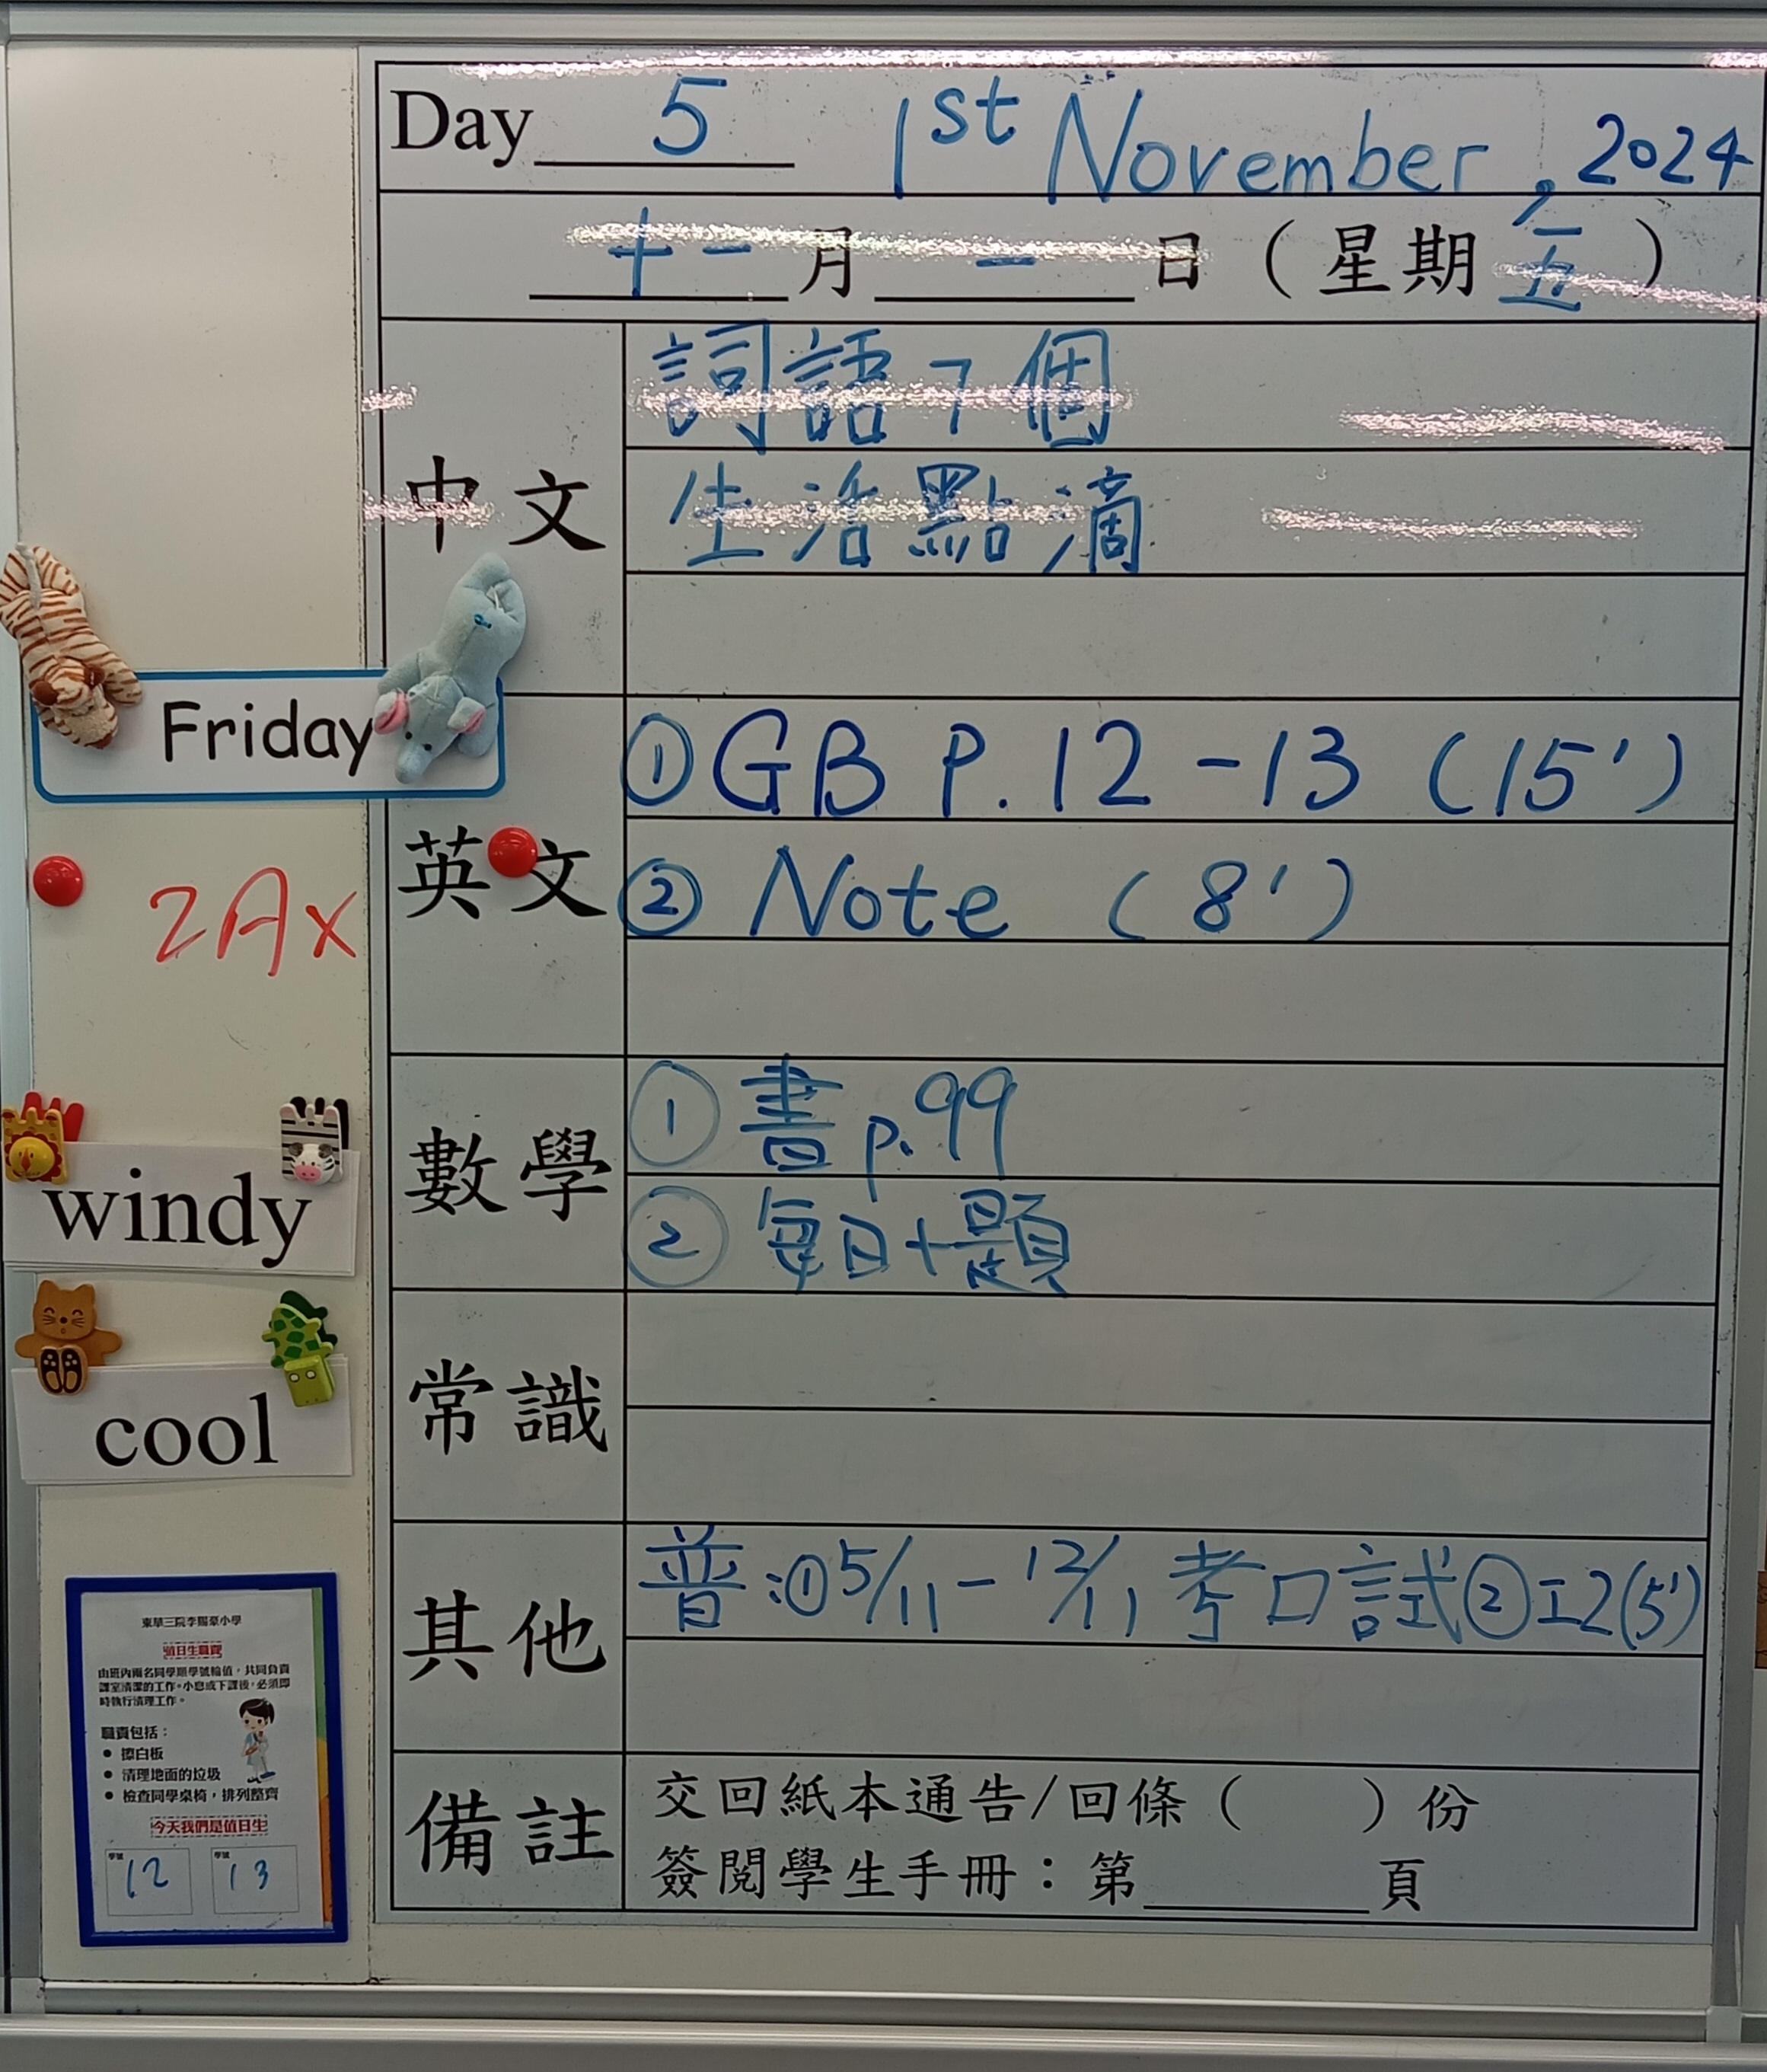 Day 5 1st November, 2024
十一月一日（星期五）
中文
詞語7個
生活點滴
Friday
英文
①GB P.12-13 (15')
②Note (8')
2A
數學
①書p.99
②每日十題
windy
常識
cool
其他
普:①5/11-12/11考口試②工2(5')
備註
交回紙本通告/回條（ ）份
簽閱學生手冊：第______頁
東華三院李賜豪小學
值日生職責
由班內兩名同學順學號輪值，共同負責
課室清潔的工作。小息或下課後，必須即
時執行清理工作。
職責包括：
● 擦白板
● 清理地面的垃圾
● 檢查同學桌椅，排列整齊
今天我們是值日生
學號 學號
12 13